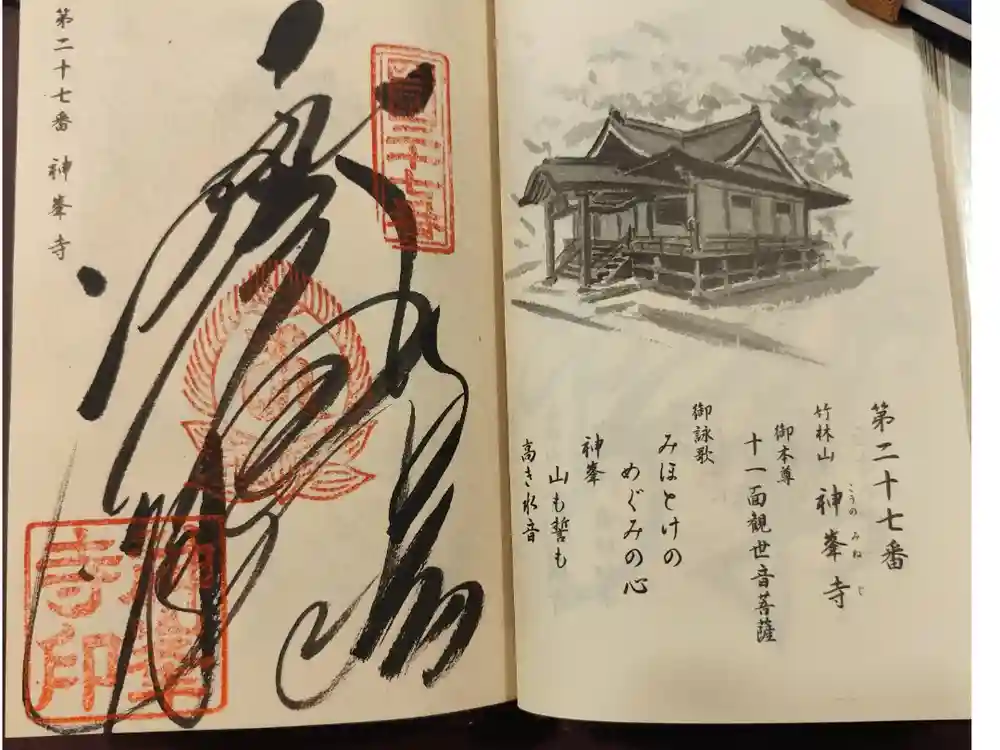 第二十七番
竹林山 神峯寺
こうのみねじ
御本尊
十一面觀世音菩薩
御詠歌
みほとけの
めぐみの心
神峯
山も誓も
高き水音
神峯寺印
第二十七番 神峯寺